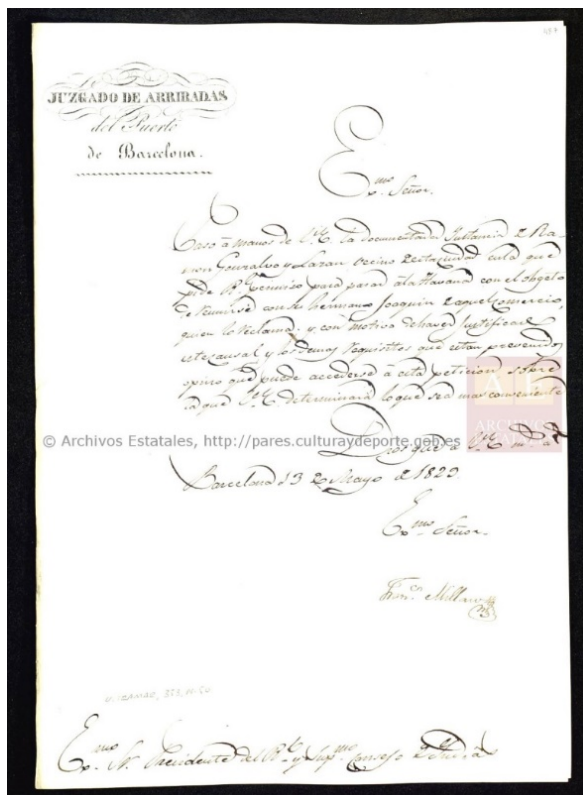 JUZGADO DE ARRIBADAS
del Puerto
de Barcelona.
Exmo. Señor.
Paso à manos de V.E. la documentada Instancia de Ra-
mon Gonzalvo y Lazan vecino de esta ciudad en la que
pide Rl. permiso para pasar á la Havana con el objeto
de reunirse con su hermano Joaquin de aquel comercio,
quien lo reclama; y con motivo de haver justificado
este causal y los demas requisitos que estan prevenidos
opino que puede accederse à esta peticion, sobre
la que V.E. determinará lo que sea mas conveniente
Dios gue. à V.E. m. a.
Barcelona 13 de Mayo de 1829.
Exmo. Señor.
Franco. Millaw
ULTRAMAR, 323, N.
Exmo. Sr. Presidente del Rl. y Supmo. Consejo de Indias
© Archivos Estatales, http://pares.culturaydeporte.gob.es
ARCHIVOS
ESTATALES